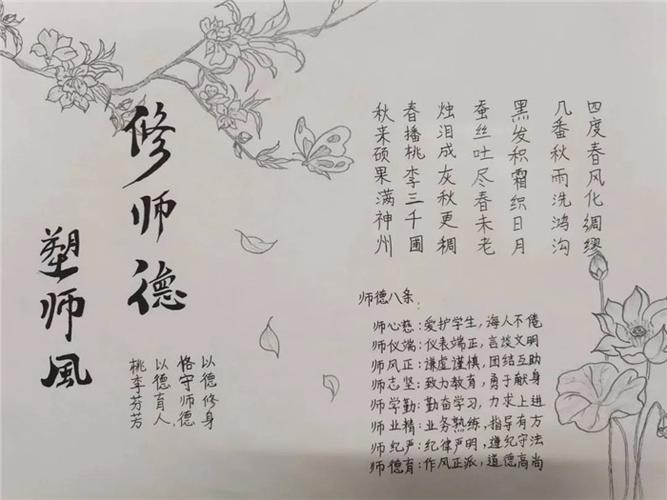 修师德
塑师风
以德修身
恪守师德
以德育人
桃李芬芳
四度春风化绸缪
几番秋雨洗鸿沟
黑发积霜织日月
蚕丝吐尽春未老
烛泪成灰秋更稠
春播桃李三千圃
秋来硕果满神州
师德八条:
师心慈:爱护学生,海人不倦
师仪端:仪表端正,言谈文明
师风正:谦虚谨慎,团结互助
师志坚:致力教育,勇于献身
师学勤:勤奋学习,力求上进
师业精:业务熟练,指导有方
师纪严:纪律严明,遵纪守法
师德育:作风正派,道德高尚